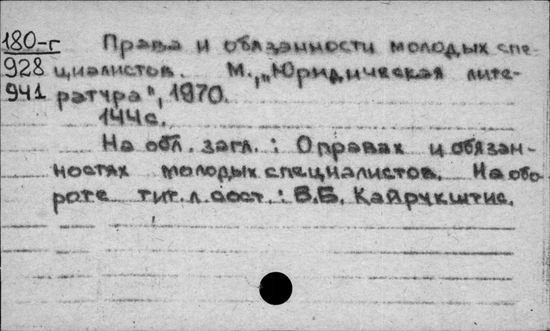 180-г Права и обязанности молодых спе-
928 циалистов. М., „Юридическая лите-
941 ратура", 1970.
144с.
На обл. загл.: О правах и обязан-
ностях молодых специалистов. На обо
роте тит. л. сост.: В.Б. Кайрукштис.